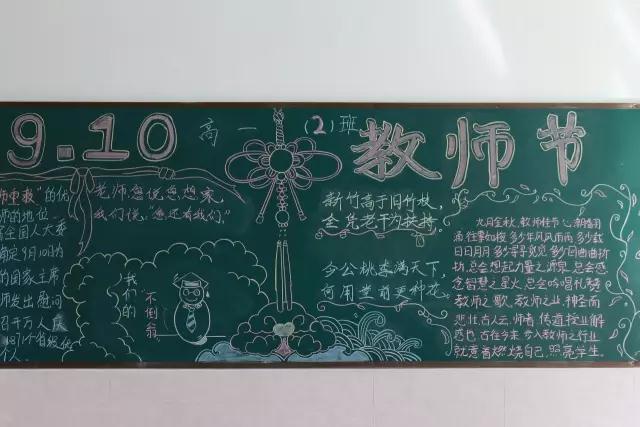 9.10
高一(2)班
教师节
的优
师的地位.
全国人大委
定9月10日为
的国家主席
师发出慰问
召开万人庆
老师您说您想家,
我们说,您还有我们."
我们的
不倒翁
新竹高于旧竹枝,
全凭老干为扶持.
令公桃李满天下,
何用堂前更种花.
九月金秋,教师佳节
涌往事如梭 多少年风风雨雨 多少载
日日月月 多少
坊.总会想起力量之源泉 总会感
念智慧之星火,总会吟唱礼赞
教师之歌. 教师之业,神圣而
悲壮 古人云,师者 传道授业解
惑也 古往今来 步入教师之行业
就意着燃烧自己,照亮学生.